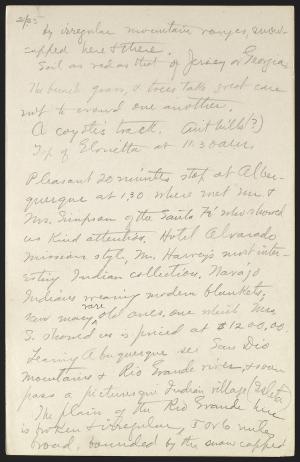 by irregular mountain ranges, snow-
capped here & there.
Soil as red as that of Jersey or Georgia
The bunch grass, & trees take great care
not to crowd one another.
A coyote's track. Ant hills (?)
Top of at 11:30 a.m.
Pleasant 20 minutes stop at Albu-
querque at 1.30 where met Mr &
Mrs. Simpson of the Santa Fé who showed
us kind attention. Hotel Alvarado
Missions style, Mr. Harvey's most inter-
esting Indian collection. Navajo
Indians wearing modern blankets,
saw many rare old ones, one which Mrs
S. showed us is priced at $1200.00.
Leaving Albuquerque see San Dio
Mountains & Rio Grande river, & soon
pass a picturesque Indian village (Isleta)
The plain of the Rio Grande here
is broken & irregular, 5 or 6 miles
broad, bounded by the snow capped